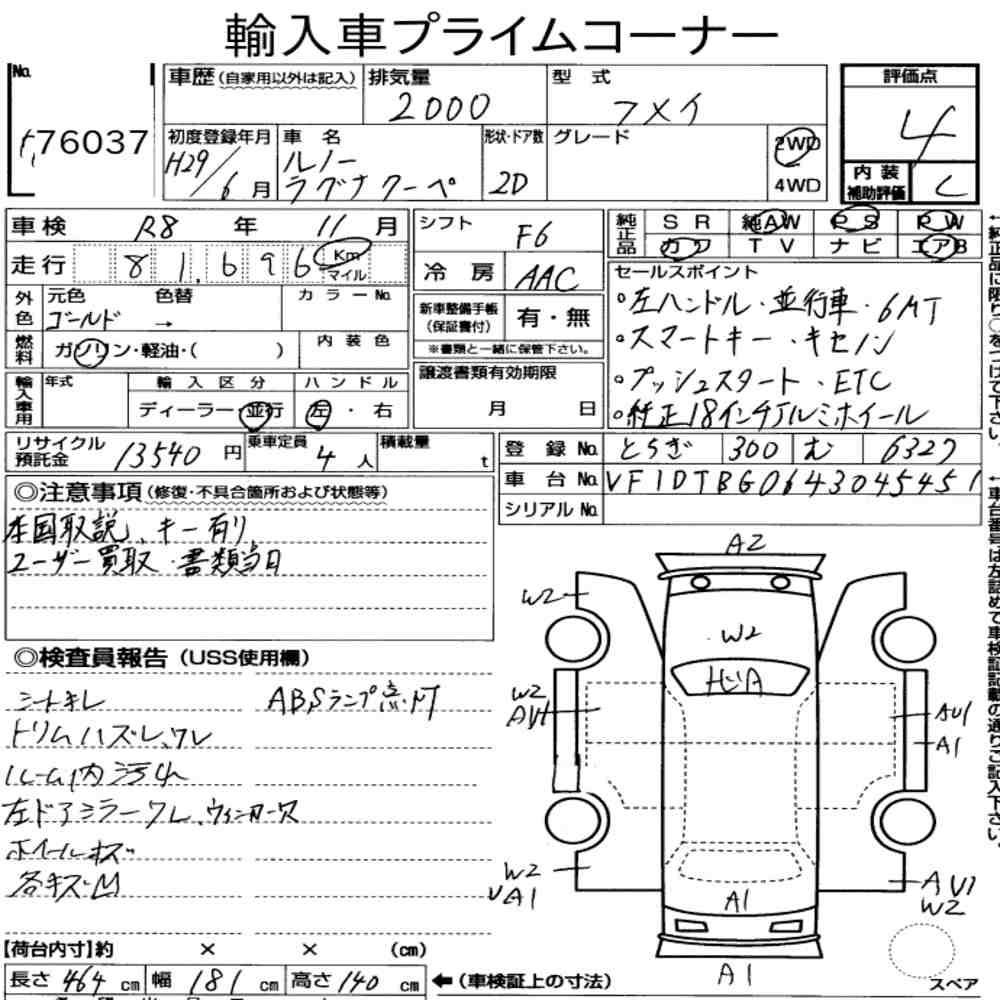 輸入車プライムコーナー
No.
76037
車歴(自家用以外は記入)
排気量
2000
型 式
フメイ
評価点
4
初度登録年月
H29/6月
車 名
ルノー
ラグナクーペ
形状・ドア数
2D
グレード
2WD
4WD
内 装
補助評価
C
車検 R8 年 11 月
走行 81,696 Km
マイル
シフト F6
冷 房 AAC
純正品
SR 純AW PS PW
カワ TV ナビ エアB
外色
元色 色替 カラーNo.
ゴールド →
燃料
ガソリン・軽油・( )
内 装 色
新車整備手帳
(保証書付)
有・無
※書類と一緒に保管下さい。
セールスポイント
○左ハンドル・並行車・6MT
○スマートキー・キセノン
○プッシュスタート・ETC
○純正18インチアルミホイール
輸入車用
年式
輸 入 区 分
ハ ン ド ル
ディーラー・並行
左・右
譲渡書類有効期限
月 日
リサイクル
預託金
13540 円
乗車定員
4 人
積載量
t
登 録 No. とちぎ 300 む 6327
車 台 No. VF1DTBG0643045451
シリアルNo.
◎注意事項(修復・不具合箇所および状態等)
本国取説、キー有り
ユーザー買取・書類当日
◎検査員報告(USS使用欄)
シートキレ ABSランプ点灯
トリムハズレ、ワレ
ルーム内汚れ
左ドアミラーワレ、ウィンカーワレ
ホイールキズ
各キズM
A2
W2
W2
ヒビA
W2
AU1
AU1
A1
W2
UA1
A1
AU1
W2
A1
スペア
【荷台内寸】約 × × (cm)
長さ 464 cm 幅 181 cm 高さ 140 cm
←(車検証上の寸法)
←純正品に限り○をつけて下さい。
←車台番号は左詰めで車検証記載の通りご記入下さい。